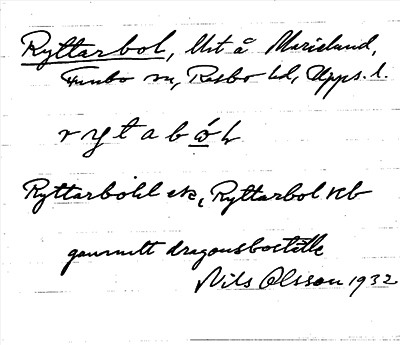 Ryttarbol, lht å Marielund,
Funbo sn, Rasbo hd, Upps. l.
rytabo̱͐l
Ryttarböhl ek, Ryttarbol kb
gammalt dragonboställe
Nils Olsson 1932